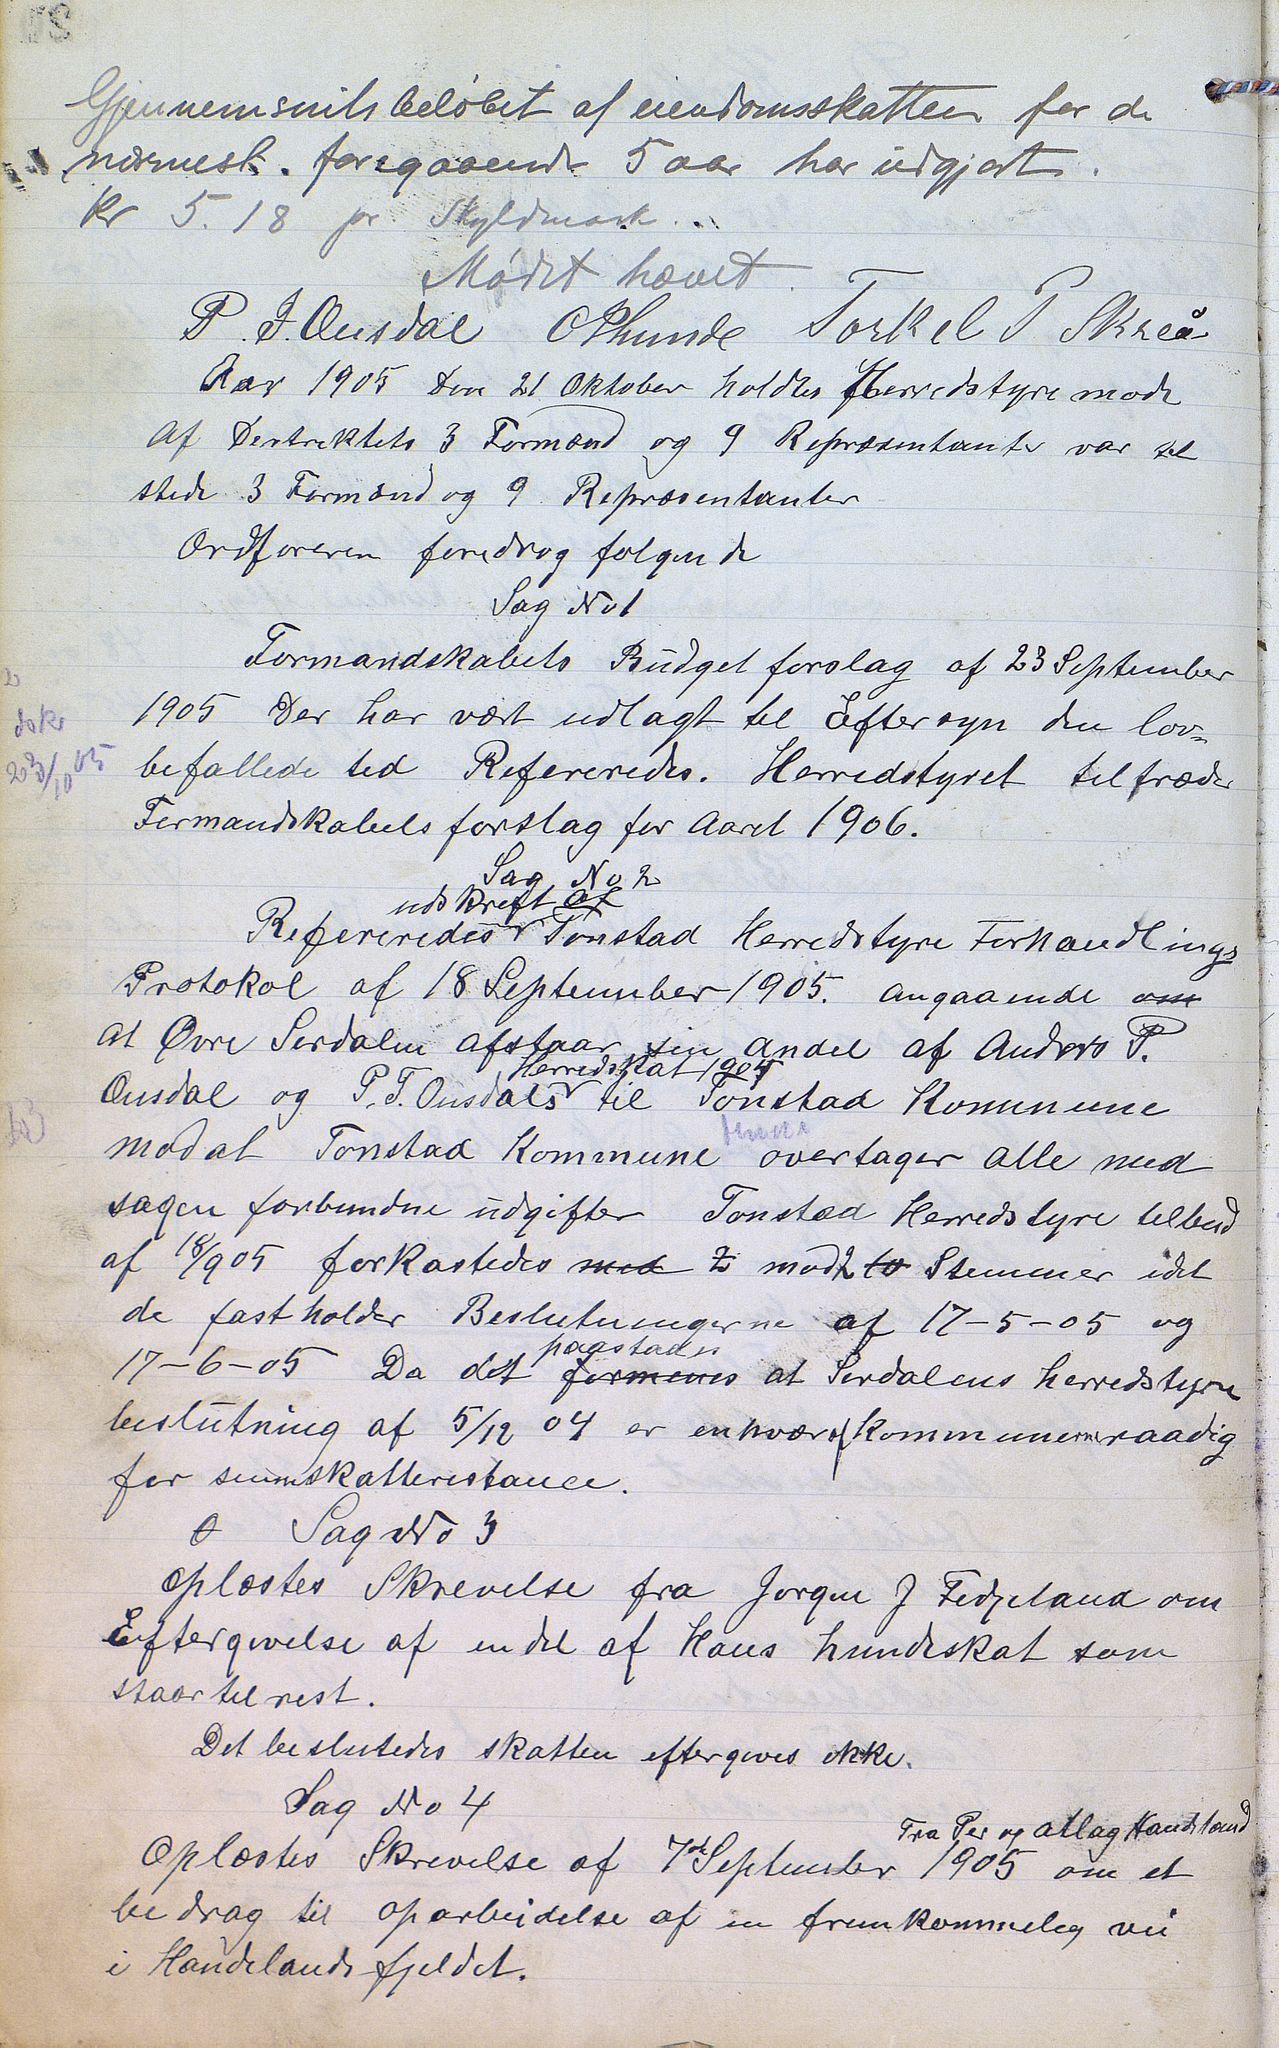 Gjennemsnits beløbet af eiendomsskatten for de
nærmest. foregaaende 5 aar har udgjort.
Kr 5.18 pr. Skyldmark...
Mødet hævet.
P. J. Ousdal O P Lunde Torkel P Skreå
Aar 1905 den 21 Oktober holdtes Herredstyre møde
Af Destriktets 3 Formænd og 9 Repræsentanter var til
stede 3 Formænd og 9 Repræsentanter
Ordføreren foredrog følgende
Sag No 1
Formandskabets Budget forslag af 23 September
1905 Der har vært udlagt til Eftersyn den lov-
befallede tid Refereredes. Herredstyret tiltræder
Formandskabets forslag for Aaret 1906.
Sag No 2
udskreft af
Refereredes Tonstad Herredstyre Forhandlings
Protokol af 18 September 1905. angaaende om
at Øvre Serdalen afstaar sin andel af Anders P.
Herredskat 1904
Ousdal og P. T. Ousdals til Tonstad Kommune
mod at Tonstad Kommune overtager alle med
sagen forbundne udgifter Tonstad Herredstyre tilbud
af 18/9 05 forkastedes med 7 mod 2 to Stemmer idet
de fastholder Beslutningerne af 17-5-05 og
paastaaes
17-6-05 Da det formenes at Serdalens herredstyre
beslutning af 5/12 04 er enhver af kommunerne raadig
for sinne skatterestance.
Sag No 3
Oplæstes Skrevelse fra Jørgen J Fedjeland om
Eftergivelse af en del af Hans hundeskat som
staar til rest.
Det beslutedes skatten eftergives ikke.
Sag No 4
Fra Per og Atlag Handeland
Oplæstes Skrevelse af 7de September 1905 om et
bedrag til oparbeidelse af en fremkommeleg vei
i Handelands fjeldet.
23/10 05